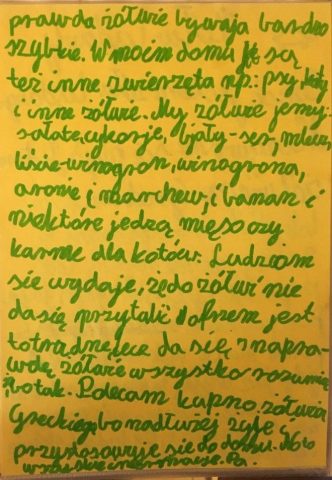 prawda żółwie bywają bardzo
szybkie. W moim domu są
też inne zwierzęta np: psy, koty
i inne żółwie. My żółwie jemy
sałatę, cykorję, biały-ser, mlecz,
liście-winogron, winogrona,
aronie i marchew, i banan i
niektóre jedzą mięso czy
karme dla kotów. Ludziom
sie wydaje, że do żółwi nie
da się przytulić. Owszem jest
to trudne lecz da się z napra-
wdę żółwie wszystko rozumią
bo tak. Polecam kupno żółwia
Greckiego bo nadłużej żyje i
przystosowuje sie do domu. No to
wszystkie Pa.